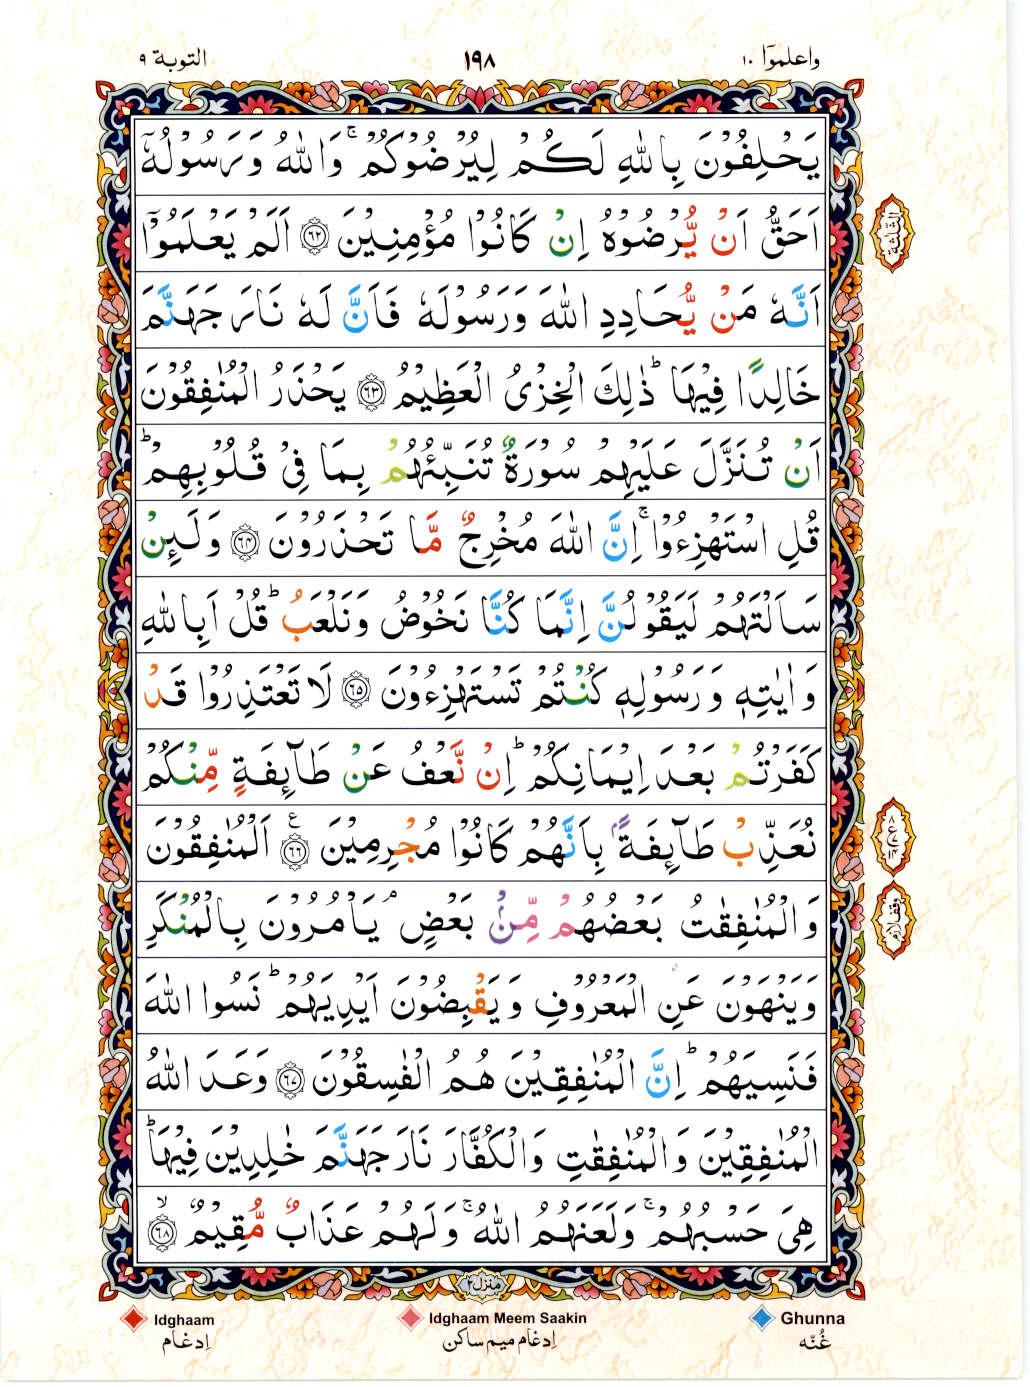 واعلموٓا ١٠
١٩٨
التوبة ٩
يَحْلِفُوْنَ بِاللّٰهِ لَكُمْ لِيُرْضُوْكُمْ ۚ وَاللّٰهُ وَرَسُوْلُهٗٓ
اَحَقُّ اَنْ يُّرْضُوْهُ اِنْ كَانُوْا مُؤْمِنِيْنَ ﴿۶۲﴾ اَلَمْ يَعْلَمُوْٓا
الثلٰثة
اَنَّهٗ مَنْ يُّحَادِدِ اللّٰهَ وَرَسُوْلَهٗ فَاَنَّ لَهٗ نَارَ جَهَنَّمَ
خَالِدًا فِيْهَا ؕ ذٰلِكَ الْخِزْىُ الْعَظِيْمُ ﴿۶۳﴾ يَحْذَرُ الْمُنٰفِقُوْنَ
اَنْ تُنَزَّلَ عَلَيْهِمْ سُوْرَةٌ تُنَبِّئُهُمْ بِمَا فِىْ قُلُوْبِهِمْ ؕ
قُلِ اسْتَهْزِءُوْا ۚ اِنَّ اللّٰهَ مُخْرِجٌ مَّا تَحْذَرُوْنَ ﴿۶۴﴾ وَلَئِنْ
سَاَلْتَهُمْ لَيَقُوْلُنَّ اِنَّمَا كُنَّا نَخُوْضُ وَنَلْعَبُ ؕ قُلْ اَبِاللّٰهِ
وَاٰيٰتِهٖ وَرَسُوْلِهٖ كُنْتُمْ تَسْتَهْزِءُوْنَ ﴿۶۵﴾ لَا تَعْتَذِرُوْا قَدْ
كَفَرْتُمْ بَعْدَ اِيْمَانِكُمْ ؕ اِنْ نَّعْفُ عَنْ طَآئِفَةٍ مِّنْكُمْ
نُعَذِّبْ طَآئِفَةًۢ بِاَنَّهُمْ كَانُوْا مُجْرِمِيْنَ ﴿۶۶﴾ اَلْمُنٰفِقُوْنَ
وَالْمُنٰفِقٰتُ بَعْضُهُمْ مِّنْۢ بَعْضٍ ۘ يَاْمُرُوْنَ بِالْمُنْكَرِ
وَيَنْهَوْنَ عَنِ الْمَعْرُوْفِ وَيَقْبِضُوْنَ اَيْدِيَهُمْ ؕ نَسُوا اللّٰهَ
فَنَسِيَهُمْ ؕ اِنَّ الْمُنٰفِقِيْنَ هُمُ الْفٰسِقُوْنَ ﴿۶۷﴾ وَعَدَ اللّٰهُ
الْمُنٰفِقِيْنَ وَالْمُنٰفِقٰتِ وَالْكُفَّارَ نَارَ جَهَنَّمَ خٰلِدِيْنَ فِيْهَا ؕ
هِىَ حَسْبُهُمْ ۚ وَلَعَنَهُمُ اللّٰهُ ۚ وَلَهُمْ عَذَابٌ مُّقِيْمٌ ﴿۶۸﴾ ۙ
منزل ٢
Idghaam
Idghaam Meem Saakin
Ghunna
اِدغَام
اِدغَام ميم ساكن
غُنّه